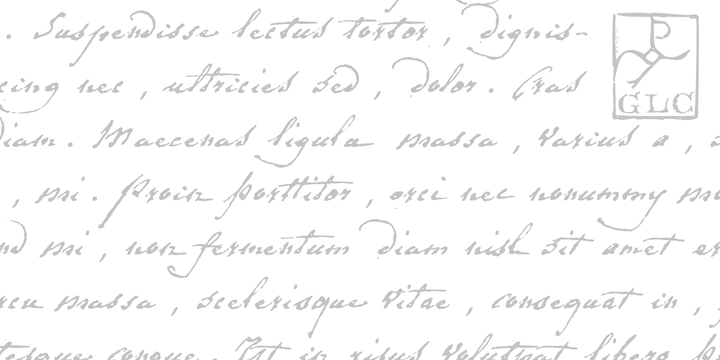 . Suspendisse lectus tortor , dignis-
cing nec , ultricies sed , dolor . Cras
GLC
diam . Maecenas ligula massa , varius a ,
, mi . Proin porttitor , orci nec nonummy
mi , non fermentum diam nisl sit amet
massa , scelerisque vitae , consequat in ,
congue . Est in risus volutpat libero